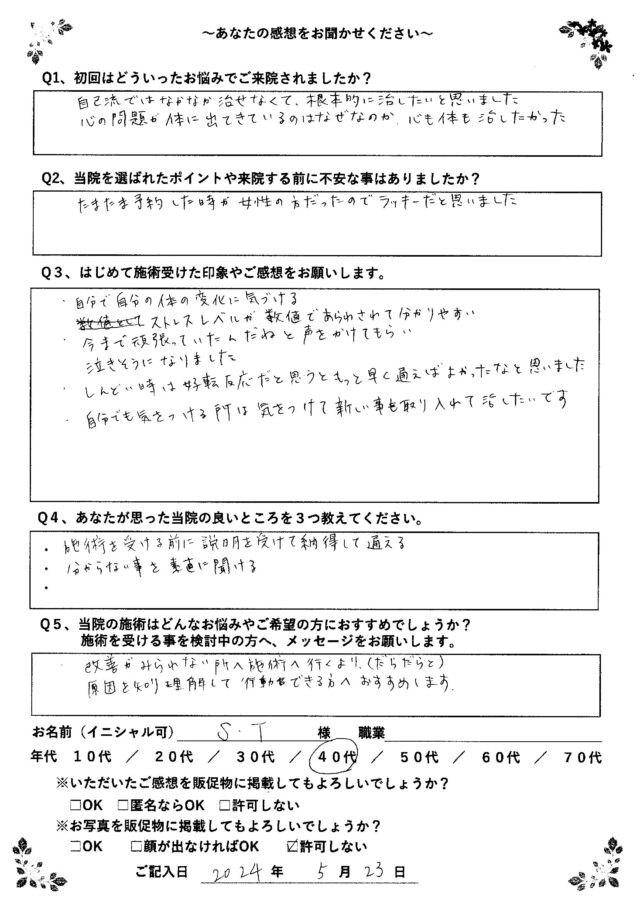 ～あなたの感想をお聞かせください～
Q1、初回はどういったお悩みでご来院されましたか？
自己流ではなかなか治せなくて、根本的に治したいと思いました
心の問題が体に出てきているのはなぜなのか、心も体も治したかった
Q2、当院を選ばれたポイントや来院する前に不安な事はありましたか？
たまたま予約した時が女性の方だったのでラッキーだと思いました
Q３、はじめて施術受けた印象やご感想をお願いします。
・自分で自分の体の変化に気づける
数値として ストレスレベルが数値であらわされて分かりやすい
・今まで頑張っていたんだねと声をかけてもらい
泣きそうになりました
・しんどい時は好転反応だと思うともっと早く通えばよかったなと思いました
・自分でも気をつける所は気をつけて新しい事も取り入れて治したいです
Q４、あなたが思った当院の良いところを３つ教えてください。
・施術を受ける前に説明を受けて納得して通える
・分からない事を素直に聞ける
・
Q５、当院の施術はどんなお悩みやご希望の方におすすめでしょうか？
施術を受ける事を検討中の方へ、メッセージをお願いします。
・改善がみられない所へ施術へ行くより、(だらだらと)
原因を知り理解して行動できる方へおすすめします。
お名前（イニシャル可） S・T 様 職業
年代 １０代 ／ ２０代 ／ ３０代 ／ ４０代 ／ ５０代 ／ ６０代 ／ ７０代
※いただいたご感想を販促物に掲載してもよろしいでしょうか？
□OK □匿名ならOK □許可しない
※お写真を販促物に掲載してもよろしいでしょうか？
□OK □顔が出なければOK ☑許可しない
ご記入日 2024 年 5 月 23 日